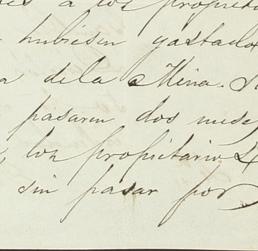 a los propieta
hubiesen gastado
a dela Mina. S
pasaren dos mese
los propietarios
sin pasar por